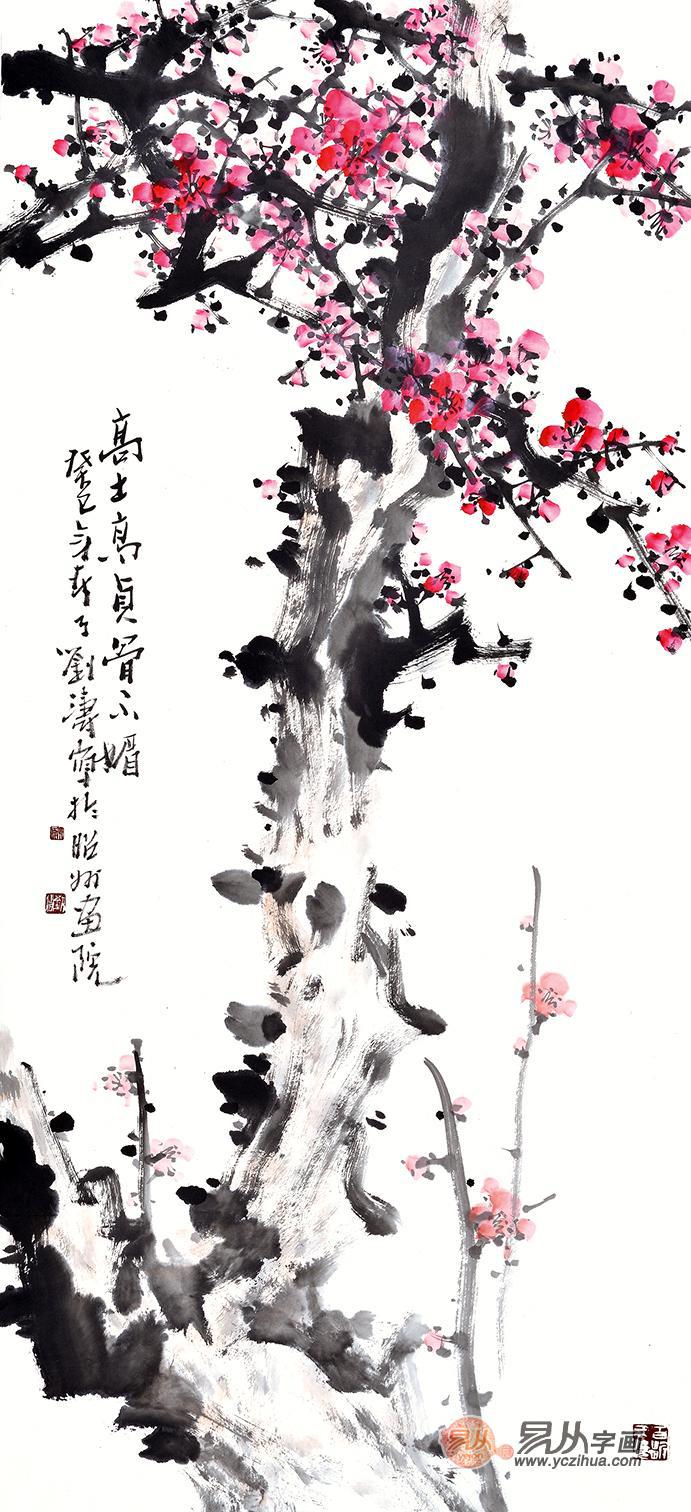 高士高貞骨不媚
癸巳年春月劉濤寫於昭州畫院
易从
易从字画
www.yczihua.com